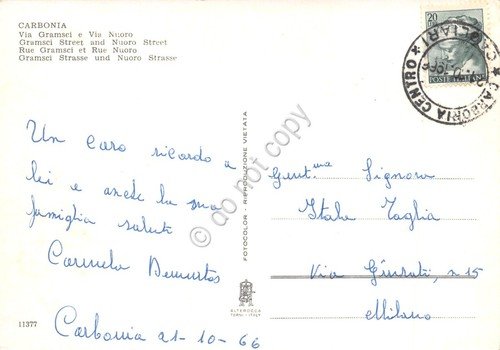 CARBONIA
Via Gramsci e Via Nuoro
Gramsci Street and Nuoro Street
Rue Gramsci et Rue Nuoro
Gramsci Strasse und Nuoro Strasse
20
POSTE ITALIANE
CARBONIA CENTRO * CAGLIARI *
Un caro ricordo a
lei e anche la sua
famiglia saluti
Carmela
Carbonia 21-10-66
11377
FOTOCOLOR - RIPRODUZIONE VIETATA
ALTEROCCA
TERNI
Gent.ma Signora
Itala Taglia
Via n 15
Milano
do not copy